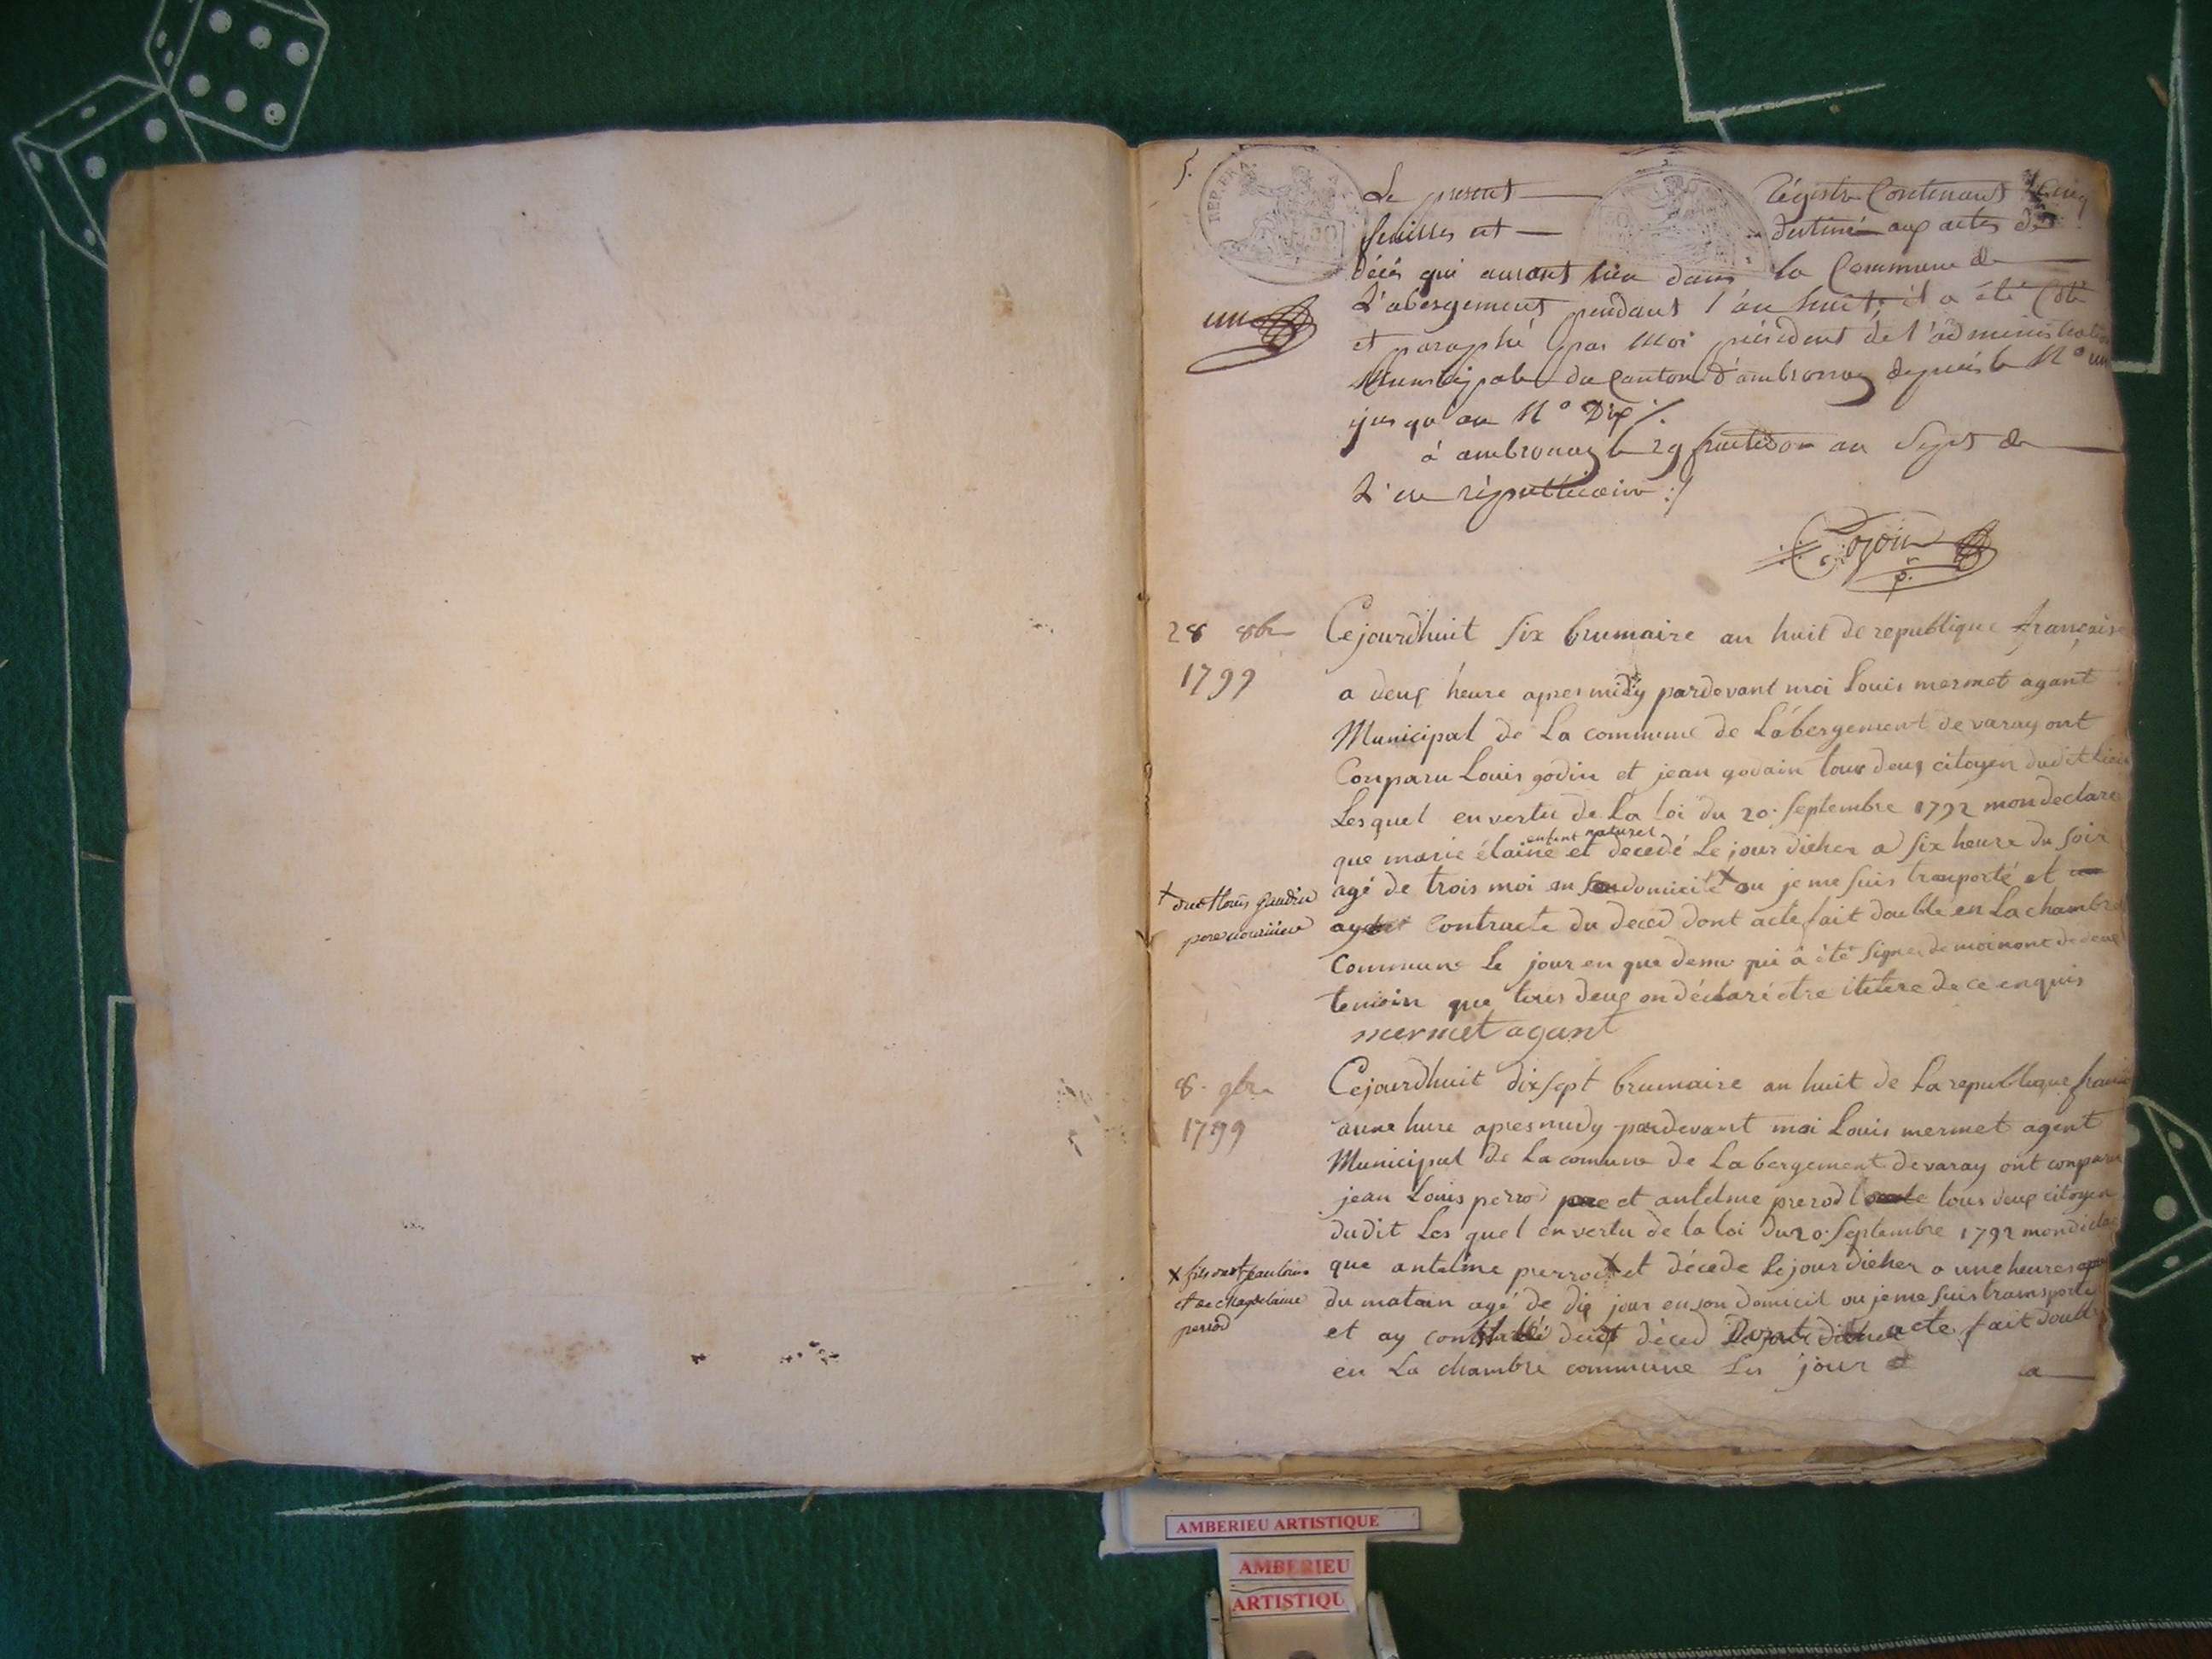 5.
REP. FRA.
Le present registre Contenant Cinq
feuilles est destiné aux actes de
décés qui auront lieu dans la Commune de
L'abergement pendant l'an huit, il a été Coté
et paraphé par moi président de l'administration
Municipale du Canton d'ambronay depuis le N° un
jusqu'au N° Dix ./.
un
à ambronay le 29 fructidor an Sept de
L'ere républicaine :/
28 8bre
1799
Cejourdhuit six brumaire an huit de republique française
a deux heure apres midy pardevant moi Louis mermet agant
Municipal de La commune de Labergement de varay ont
Conparu Louis godin et jean godain tous deux citoyen dudit Lieu
Lesquel en vertu de La loi du 20. Septembre 1792 mon declare
enfent naturel
que marie élaine et decedé Le jour dieher a six heure du soir
agé de trois moi en son domicile ou je me suis tranporté et
pere nouricier
ay contracte du deced dont acte fait double en La chambre
commune Le jour en que desu qui à été signé de moi nont de deux
temoin que tous deux on déclaré etre iletere de ce enquis
mermet agant
8. 9bre
1799
Cejourdhuit dixsept brumaire an huit de La republique
a une hure apres midy pardevant moi Louis mermet agent
Municipal de La comune de Labergement de varay ont comparu
jean Louis perrod et antelme prerod tous deux citoyen
dudit Les quel en vertu de la loi du 20. Septembre 1792
que antelme pierrod et décede Le jour dieher a une heures
x fils de jean louis
et de Magdelaine
perrod
du matain agé de dix jour en son domicil ou je me suis transporté
et ay constatté deced acte fait double
en La chambre commune Les jour
AMBERIEU ARTISTIQUE
AMBERIEU
ARTISTIQU